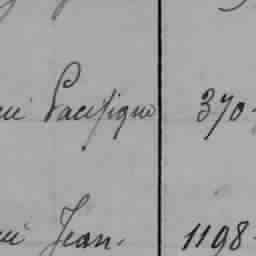 Pacifique 370
Jean. 1198